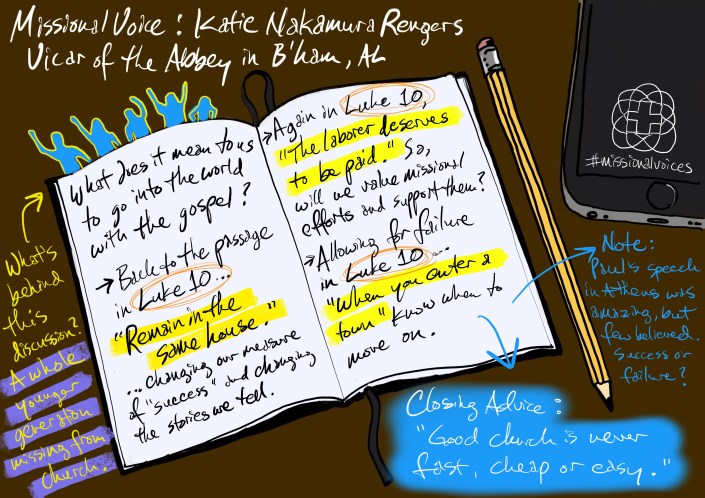 Missional Voice: Katie Nakamura Rengers
Vicar of the Abbey in B'ham, AL
What does it mean to us
to go into the world
with the gospel?
→ Back to the passage
in Luke 10...
"Remain in the
same house."
...changing our measure
of "success" and changing
the stories we tell.
→ Again in Luke 10,
"The laborer deserves
to be paid." So,
will we value missional
efforts and support them?
→ Allowing for failure
in Luke 10...
"When you enter a
town" Know when to
move on.
#missionalvoices
What's
behind
this
discussion?
A whole
younger
generation
missing from
church.
Note:
Paul's speech
in Athens was
amazing, but
few believed.
Success or
failure?
Closing Advice:
"Good church is never
fast, cheap or easy."